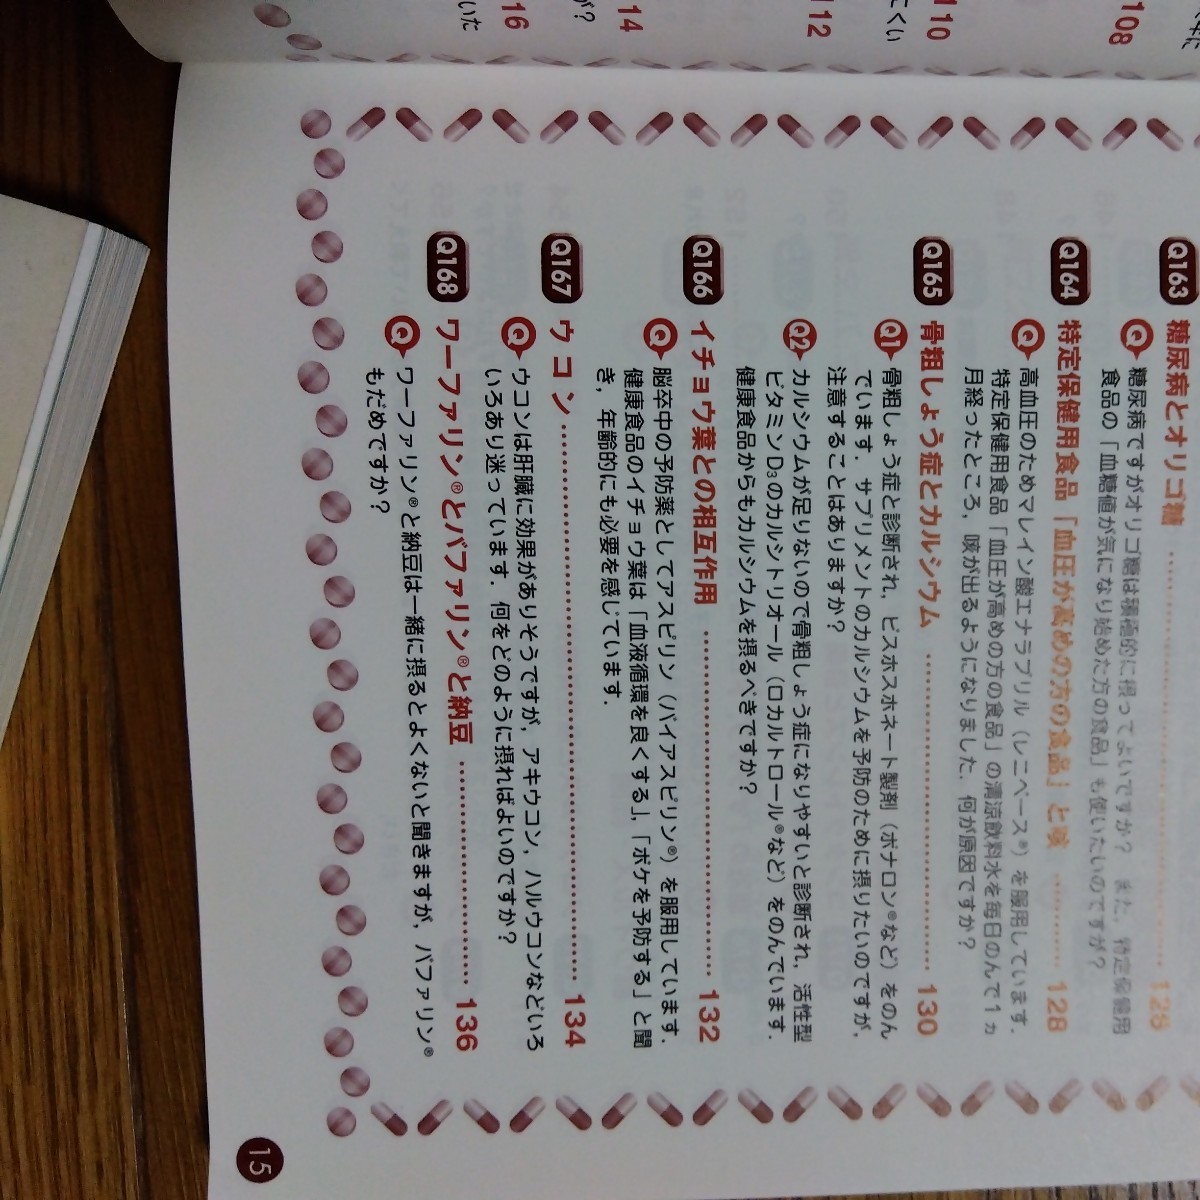 108
110
こくい
112
14
が？
16
いた
Q163 糖尿病とオリゴ糖 128
Q 糖尿病ですがオリゴ糖は積極的に摂ってよいですか？ また，特定保健用
食品の「血糖値が気になり始めた方の食品」も使いたいのですが？
Q164 特定保健用食品「血圧が高めの方の食品」と咳 128
Q 高血圧のためマレイン酸エナラプリル（レニベース®）を服用しています．
特定保健用食品「血圧が高めの方の食品」の清涼飲料水を毎日のんで1ヵ
月経ったところ，咳が出るようになりました．何が原因ですか？
Q165 骨粗しょう症とカルシウム 130
Q1 骨粗しょう症と診断され，ビスホスホネート製剤（ボナロン®など）をのん
でいます．サプリメントのカルシウムを予防のために摂りたいのですが，
注意することはありますか？
Q2 カルシウムが足りないので骨粗しょう症になりやすいと診断され，活性型
ビタミンD₃のカルシトリオール（ロカルトロール®など）をのんでいます．
健康食品からもカルシウムを摂るべきですか？
Q166 イチョウ葉との相互作用 132
Q 脳卒中の予防薬としてアスピリン（バイアスピリン®）を服用しています．
健康食品のイチョウ葉は「血液循環を良くする」，「ボケを予防する」と聞
き，年齢的にも必要を感じています．
Q167 ウコン 134
Q ウコンは肝臓に効果がありそうですが，アキウコン，ハルウコンなどいろ
いろあり迷っています．何をどのように摂ればよいのですか？
Q168 ワーファリン®とバファリン®と納豆 136
Q ワーファリン®と納豆は一緒に摂るとよくないと聞きますが，バファリン®
もだめですか？
15